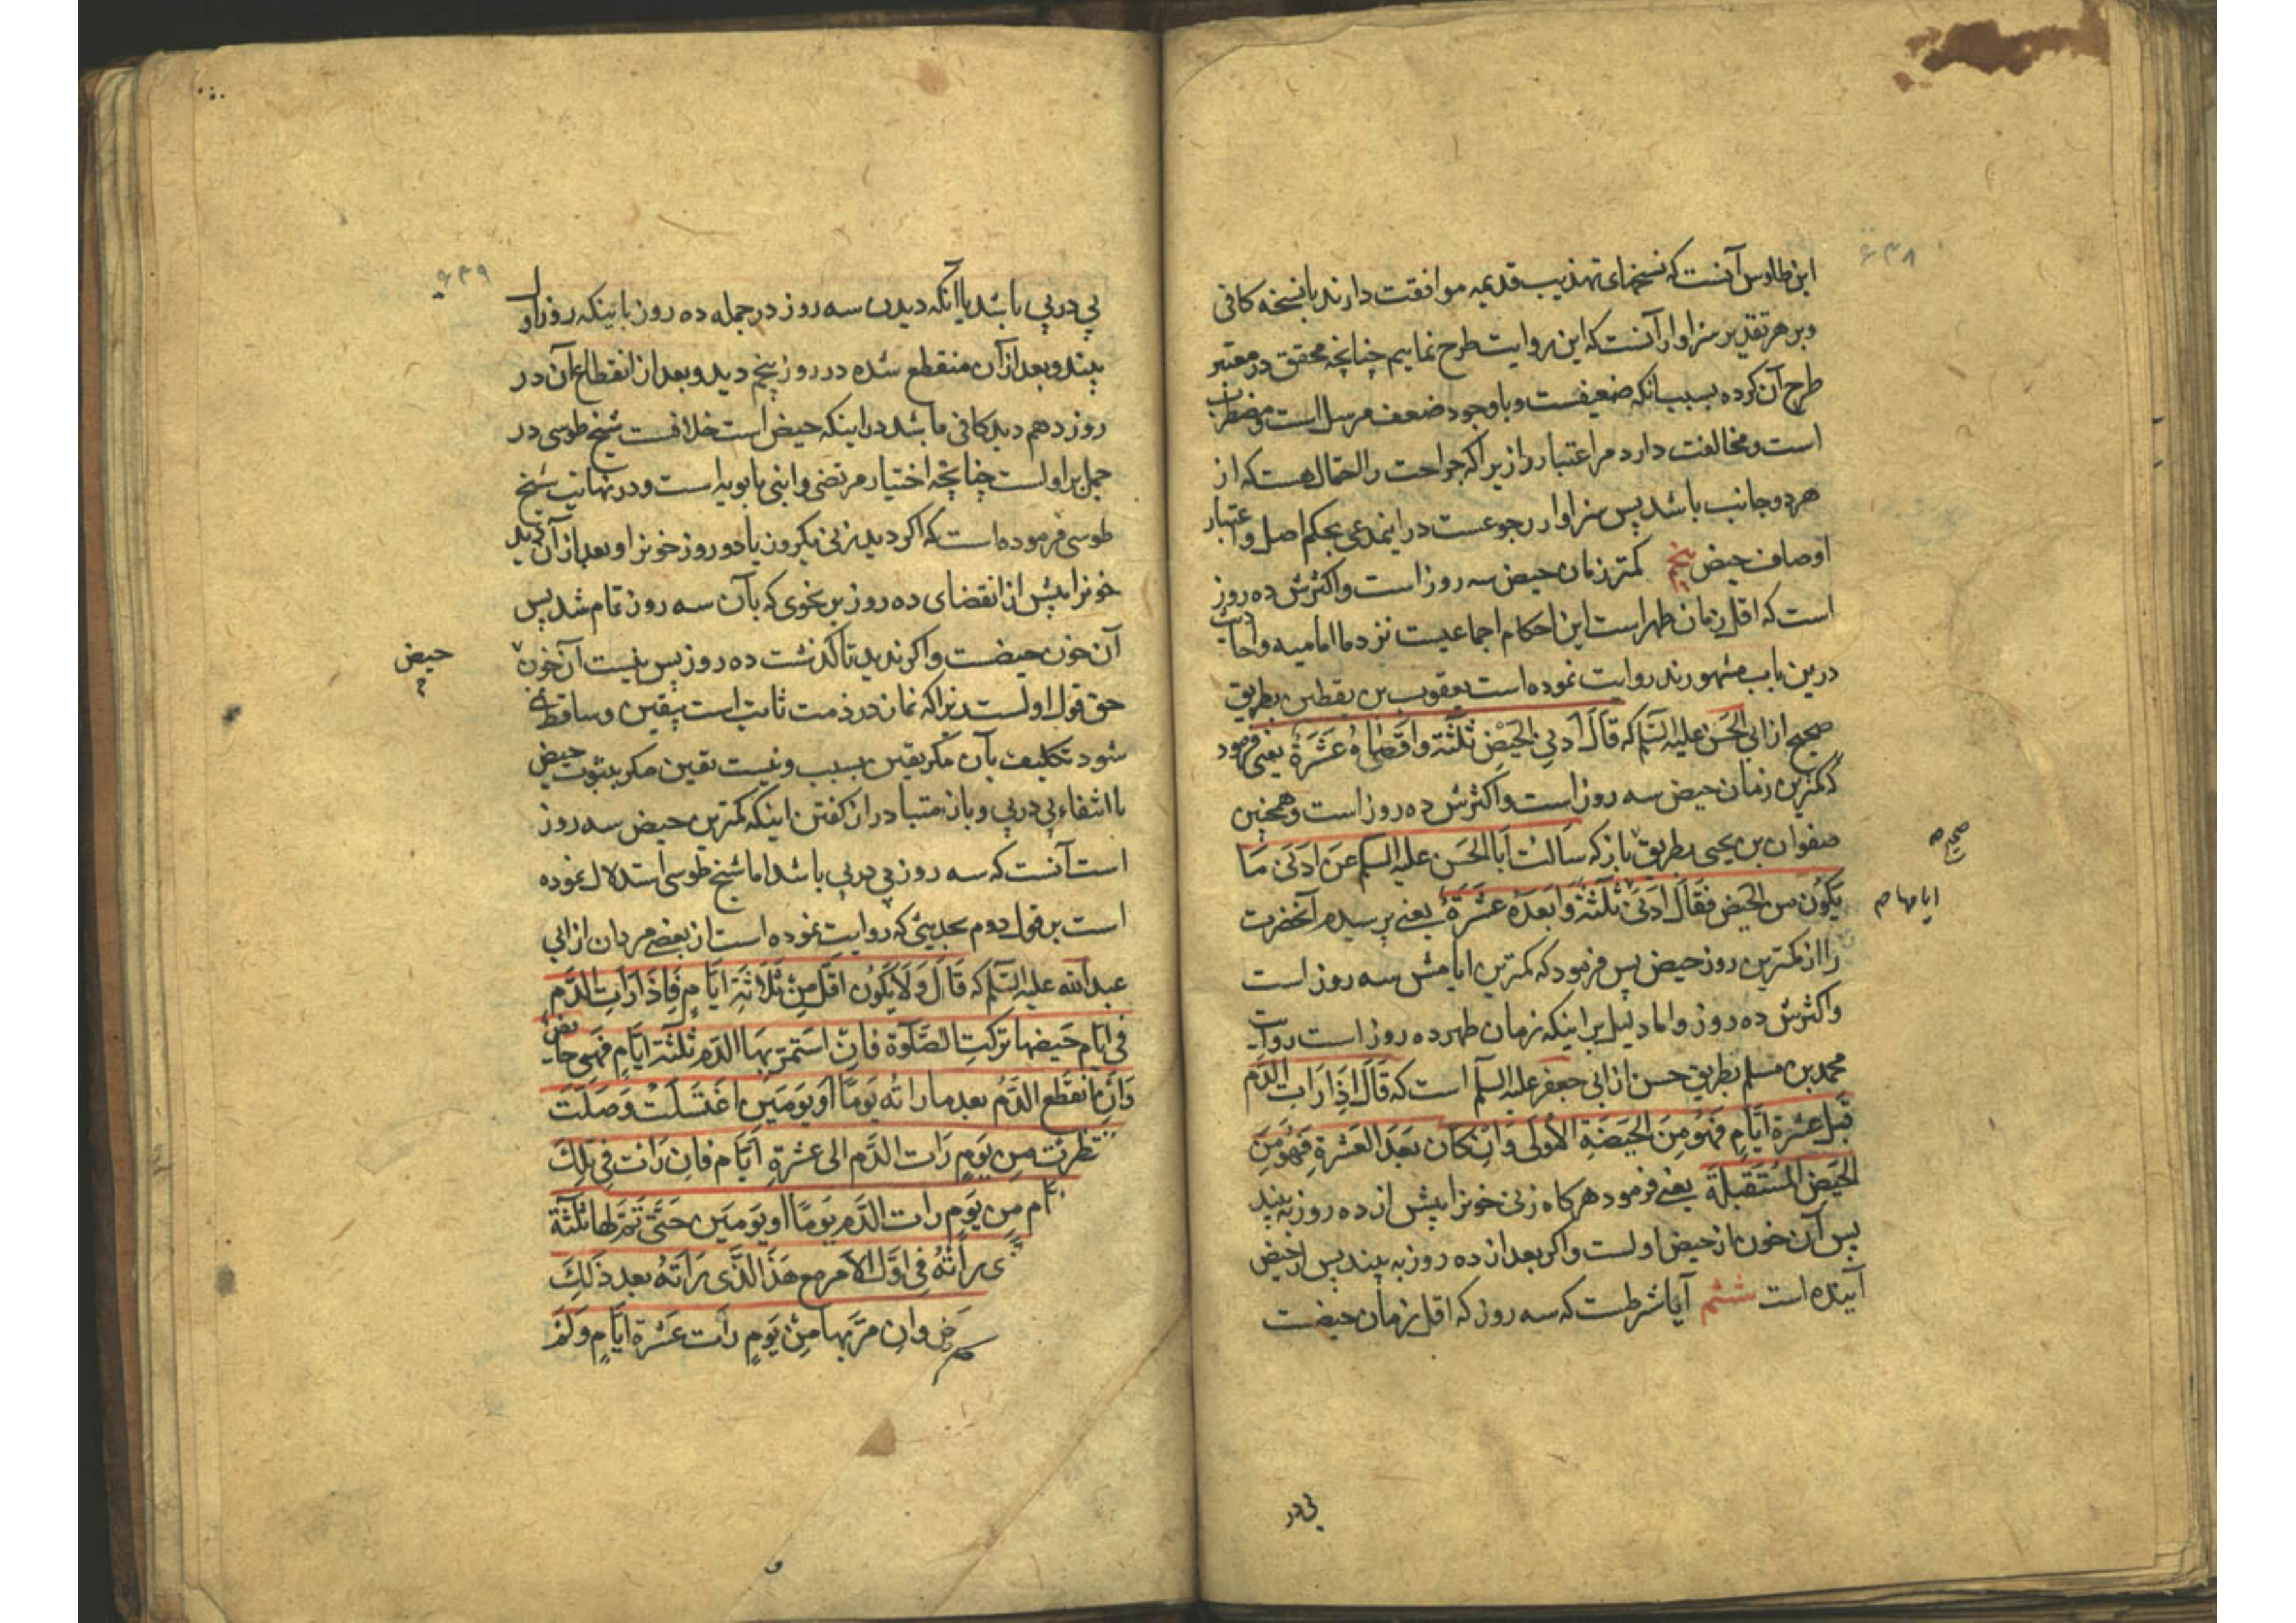 ۶۳۸
ابن طاوس آنست که نسخهای تهذیب قدیمه موافقت دارند با نسخه کافی
و بر هر تقدیر سزاوار آنست که این روایت طرح نماییم چنانچه محقق در معتبر
طرح آن کرده بسبب انکه ضعیفست و با وجود ضعف مرسل است و مضطرب
است و مخالفت دارد مر اعتبار را زیرا که جراحت را احتمال هست که از
هر دو جانب باشد پس سزاوار رجوعست در اینمدعی بحکم اصل و اعتبار
اوصاف حیض پنجم کمتر زمان حیض سه روز است و اکثرش ده روز
است که اقل زمان طهر است این احکام اجماعیست نزد ما امامیه و احادیث
درین باب مشهورند روایت نموده است یعقوب بن یقطین بطریق
صحیح از ابی الحسن علیه السّلم که قَالَ اَدنی الحَیْضِ ثَلٰثَة وَاَقصَاهُ عَشَرَةٌ یعنی فرمود
که کمترین زمان حیض سه روز است و اکثرش ده روز است و همچنین
صفوان بن یحیی بطریق باز که سَاَلتُ اَبَا الحَسَن علیه السلم عَن اَدنَی مَا
صحیح صح
یَکُونُ مِن الحَیضِ فَقَالَ اَدنَی ثَلٰثَةٌ وَابعَدهُ عَشَرَةٌ یعنی پرسیدم آنحضرت
ایامها صح
را از کمترین روز حیض پس فرمود که کمترین ایامش سه روز است
و اکثرش ده روز و اما دلیل بر اینکه زمان طهر ده روز است روایت
محمد بن مسلم بطریق حسن از ابی جعفر علیه السلم است که قَالَ اِذَا رَاَت الدَّم
قَبلَ عَشرَة اَیَّامٍ فَهُوَ مِنَ الحَیضَةِ الاُولَی وَاِنْ کَان بَعَدَ العَشرَةِ فَهُوَ مِنَ
الحَیضِ المُستَقبلَة یعنی فرمود هر کاه زنی خونرا پیش از ده روز به بیند
پس آن خون از حیض اولست و اکر بعد از ده روز به بیند پس از حیض
آینده است ششم آیا شرطست که سه روز که اقل زمان حیضست
پی در
۶۳۹
پی در پی باشد یا آنکه دیدن سه روز در جمله ده روز باینکه روز اول
بیند و بعد از آن منقطع شده در روز پنجم دید و بعد از انقطاع آن در
روز دهم دید کافی باشد در اینکه حیض است خلافست شیخ طوسی در
جمل بر اولست چنانچه اختیار مرتضی و ابنی بابویه است و در نهایت شیخ
طوسی فرموده است که اکر دید زنی یکروز یا دو روز خونرا و بعد از آن دید
خونرا پیش از انقضای ده روز بر نحوی که بآن سه روز تمام شد پس
آن خون حیضست و اکر ندید تا کذشت ده روز پس نیست آن خون
حیض
حق قول اولست زیرا که نماز در ذمت ثابت است بیقین و ساقط نمی
شود تکلیف بآن مکر بیقین بسبب و نیست یقین مکر بثبوت حیض
با انتفاء پی در پی و باز متبادر از کفتن اینکه کمترین حیض سه روز
است آنست که سه روز پی در پی باشد اما شیخ طوسی استدلال نموده
است بر قول دوم بحدیثی که روایت نموده است از بعضی مردان از ابی
عبد الله علیه السّلم که قَالَ وَ لَا یَکُونُ اَقَلّ مِنْ ثَلَاثَةِ اَیَّامٍ فَاِذَا رَاَت الدَّم
فی ایَّام حَیضها تَرکَتِ الصَّلَوٰة فَاِن استَمَرّ بهَا الدَّم ثلثَة اَیَّامٍ فَهِیَ حایض
وَاِن انقَطَع الدَّمُ بعد ما راَتهُ یَومًا اَو یَومَین اغتَسلَتْ وَصَلَّت
تظرَت مِن یَومٍ رَاَت الدَّم الی عشَرةِ اَیَّام فَاِن رَاَت فِی تلِکَ
ام مِن یَومٍ رات الدَّم یَومًا او یَومَین حَتَّی تَمَّ لها ثَلثَة
ی رَاَتهُ فِی اوَّل الاَمر مع هَذا الَّذی رَاَتهُ بعد ذَلِکَ
ض وان مَرّ بها مِنْ یَومٍ رَاَت عَشَرَة ایَّامٍ وَلَمْ